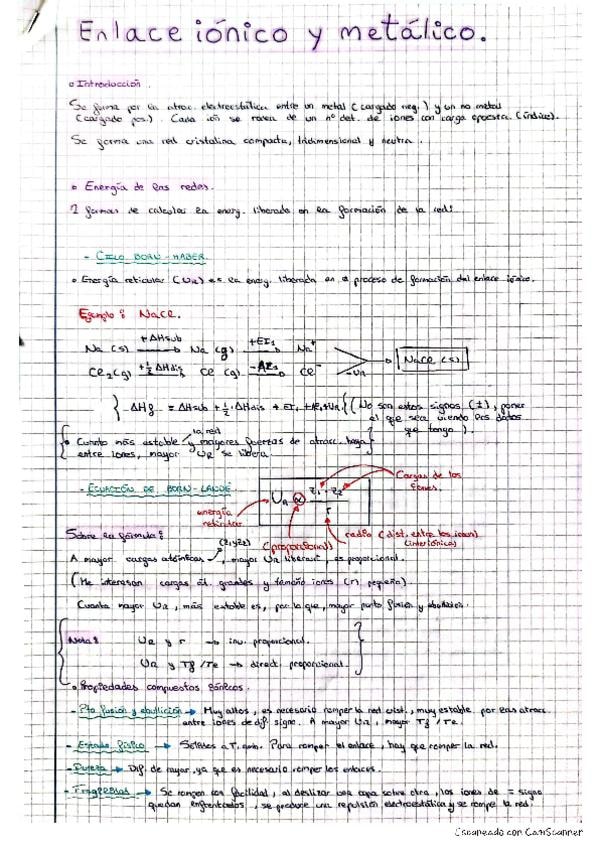 Enlace iónico y metálico.
Introducción.
Se forma por la atrac. electroestática entre un metal (cargado neg.) y un no metal
(cargado pos.). Cada ión se rodea de un nº det. de iones con carga opuesta. (índice).
Se forma una red cristalina compacta, tridimensional y neutra.
Energía de las redes.
2 formas de calcular la energ. liberada en la formación de la red:
- CICLO BORN-HABER.
Energía reticular (UR) es la energ. liberada en el proceso de formación del enlace iónico.
Ejemplo: NaCl.
Na (s) +ΔHsub Na (g) +EI1 Na+
Cl2(g) +½ΔHdis Cl (g) -AE1 Cl- -UR NaCl (s)
ΔHf = ΔHsub + ½·ΔHdis + EI1 + AE1 + UR (No son estos signos (±), poner
el que sea viendo los datos
que tengo).
Cuanto más estable la red y mayores fuerzas de atracc. haya
entre iones, mayor UR se libera.
- ECUACIÓN DE BORN-LANDÉ.
UR α z1·z2 / r
Cargas de los
iones.
energía
reticular
(proporcional)
radio (dist. entre los iones)
(interiónica)
Sobre la fórmula:
A mayor cargas atómicas (z1 y z2), mayor UR liberará, es proporcional.
(Me interesan cargas át. grandes y tamaño iones (r) pequeño).
Cuanta mayor UR, más estable es, por lo que, mayor punto fusión y ebullición.
Nota:
UR y r → inv. proporcional.
UR y Tf/Te → direct. proporcional.
Propiedades compuestos iónicos.
- Pto fusión y ebullición → Muy altos, es necesario romper la red crist., muy estable por las atracc.
entre iones de dif. signo. A mayor UR, mayor Tf/Te.
- Estado físico → Sólidos a T. amb. Para romper el enlace, hay que romper la red.
- Dureza → Dif. de rayar, ya que es necesario romper los enlaces.
- Fragilidad → Se rompen con facilidad, al deslizar una capa sobre otra, los iones de = signo
quedan enfrentados, se produce una repulsión electroestática y se rompe la red.
Escaneado con CamScanner